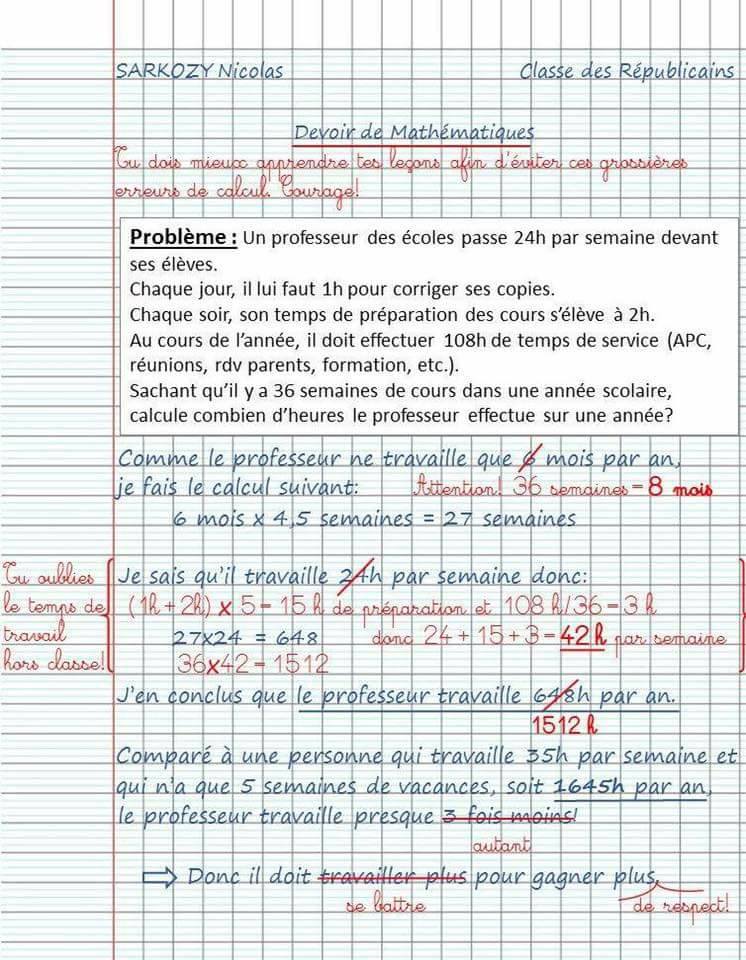 SARKOZY Nicolas Classe des Républicains
Devoir de Mathématiques
Tu dois mieux apprendre tes leçons afin d'éviter ces grossières
erreurs de calcul. Courage!
Problème : Un professeur des écoles passe 24h par semaine devant
ses élèves.
Chaque jour, il lui faut 1h pour corriger ses copies.
Chaque soir, son temps de préparation des cours s'élève à 2h.
Au cours de l'année, il doit effectuer 108h de temps de service (APC,
réunions, rdv parents, formation, etc.).
Sachant qu'il y a 36 semaines de cours dans une année scolaire,
calcule combien d'heures le professeur effectue sur une année?
Comme le professeur ne travaille que 6 mois par an,
je fais le calcul suivant: Attention! 36 semaines = 8 mois
6 mois x 4,5 semaines = 27 semaines
Tu oublies
le temps de
travail
hors classe!
Je sais qu'il travaille 24h par semaine donc:
(1h + 2h) x 5 = 15 h de préparation et 108 h/36 = 3 h
27x24 = 648 donc 24 + 15 + 3 = 42 h par semaine
36x42 = 1512
J'en conclus que le professeur travaille 648h par an.
1512 h
Comparé à une personne qui travaille 35h par semaine et
qui n'a que 5 semaines de vacances, soit 1645h par an,
le professeur travaille presque 3 fois moins!
autant
⇨ Donc il doit travailler plus pour gagner plus.
se battre de respect!